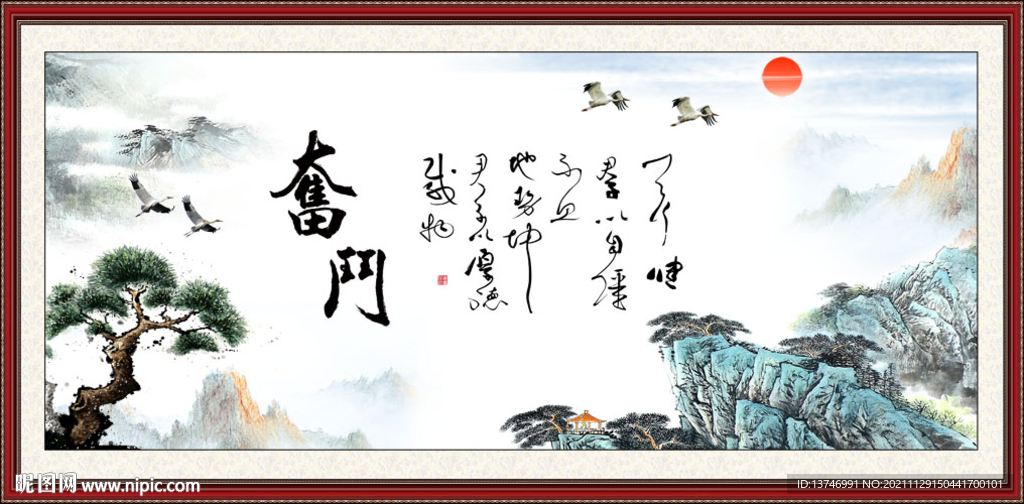 天行健
君子以自强
不息
地势坤
君子以厚德
载物
奮
鬥
昵图网 www.nipic.com
ID:13746991 NO:20211129150441700101